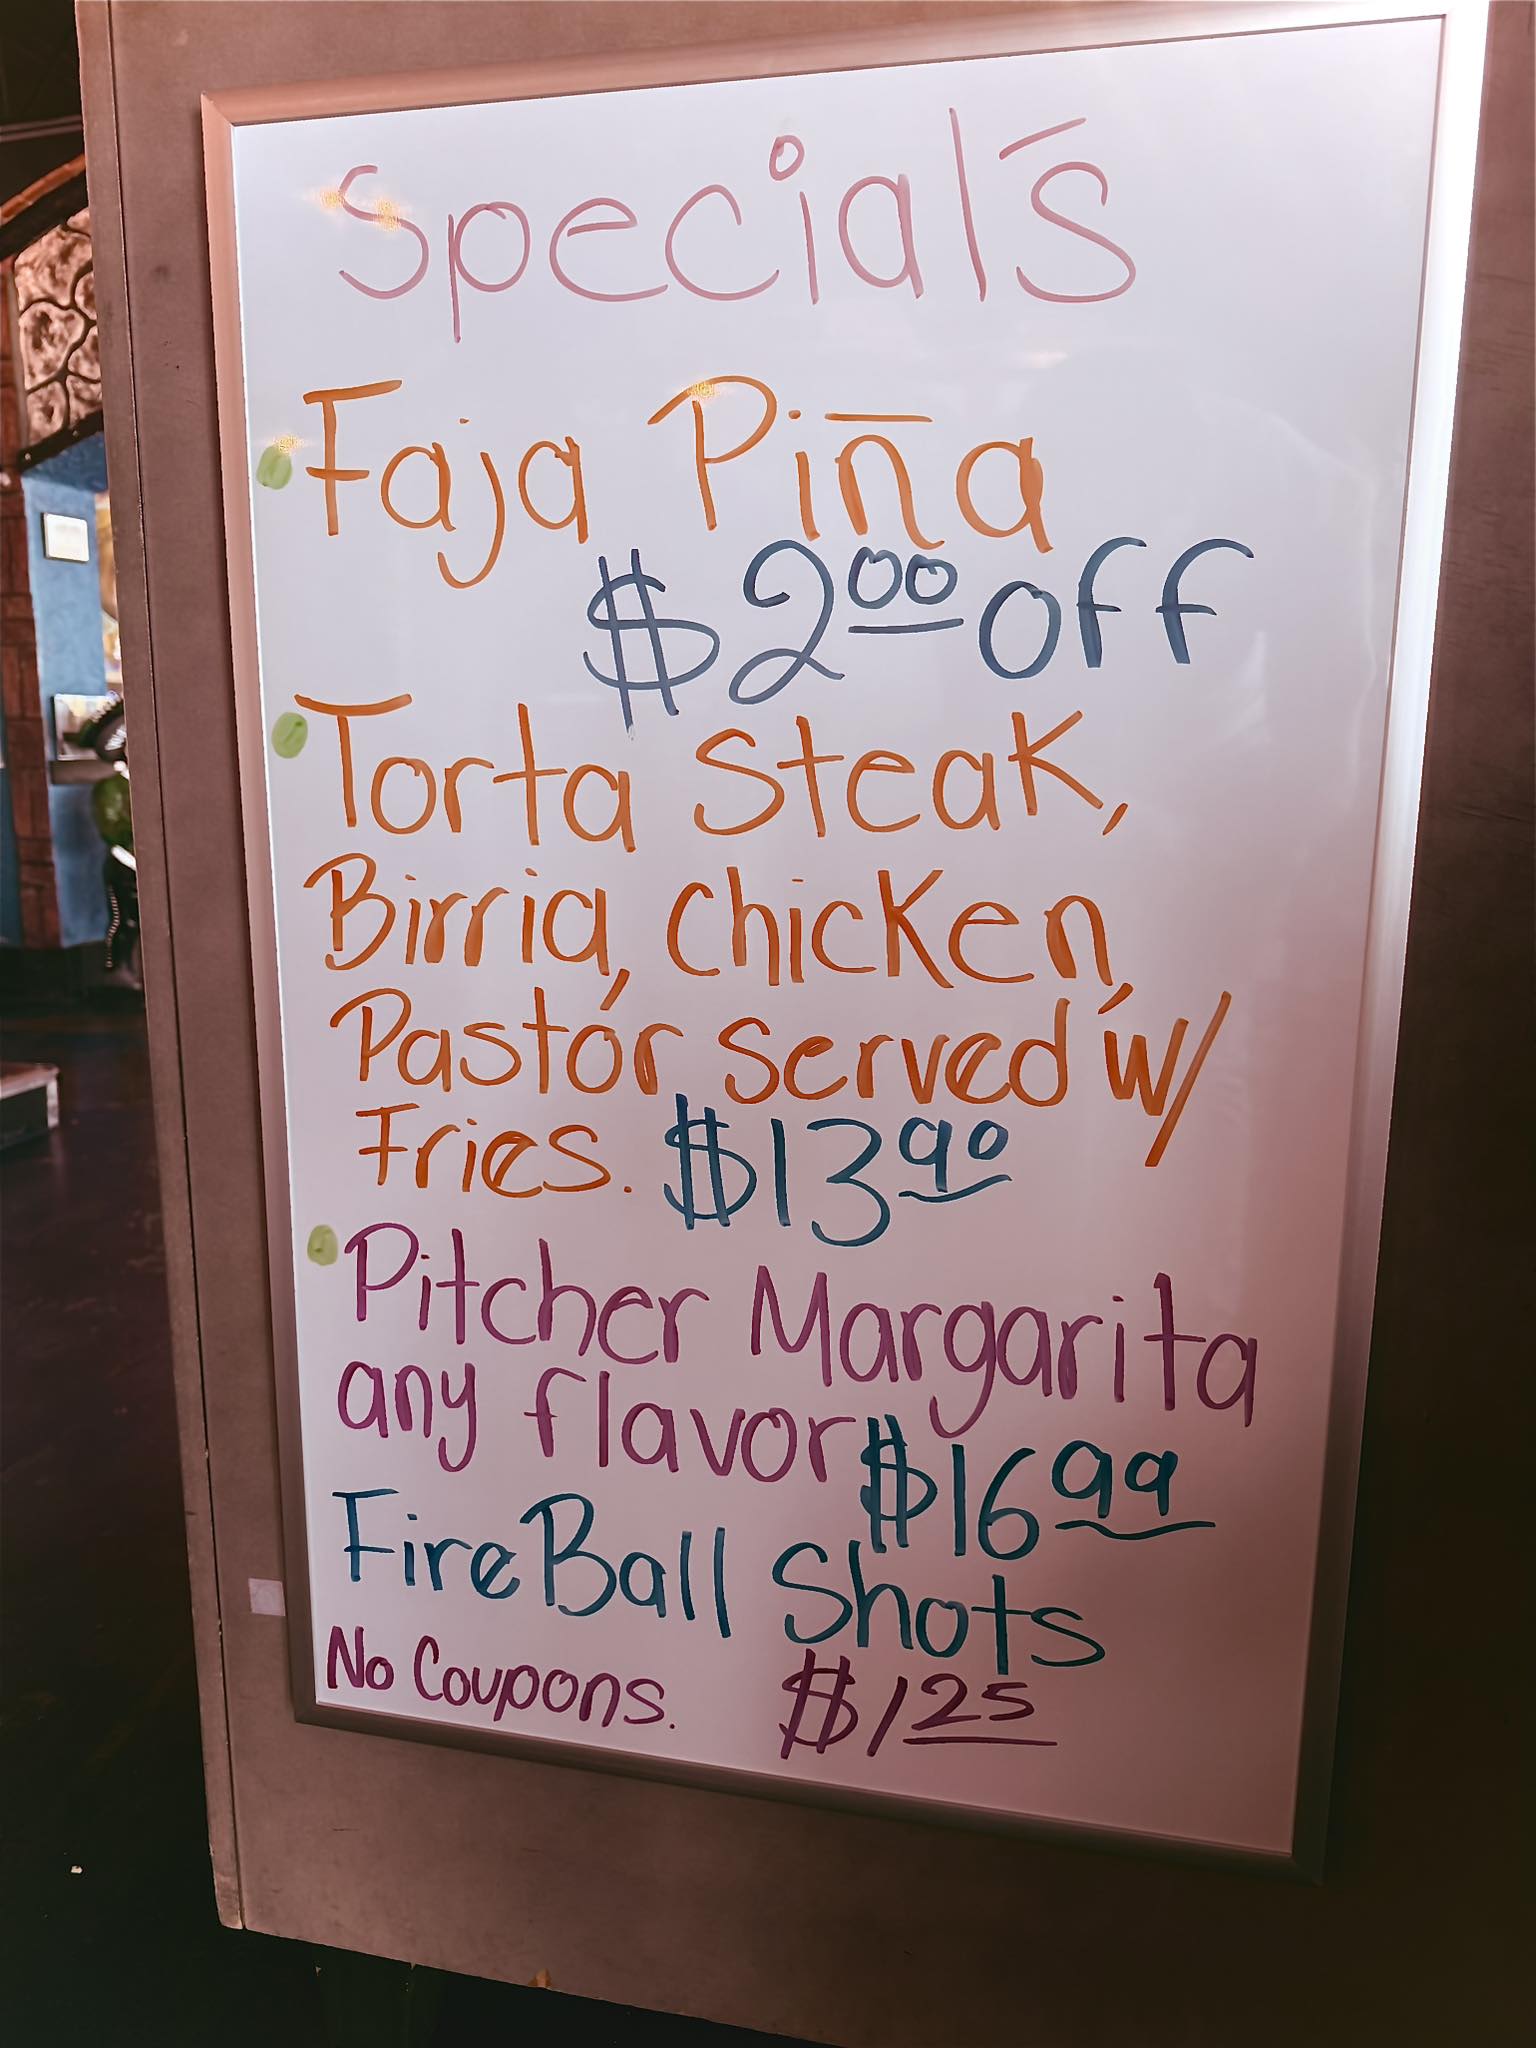 Special's
Faja Piña
$2.00 off
Torta Steak,
Birria, chicken,
Pastór served w/
Fries. $13.90
Pitcher Margarita
any flavor $16.99
FireBall Shots
No Coupons. $1.25